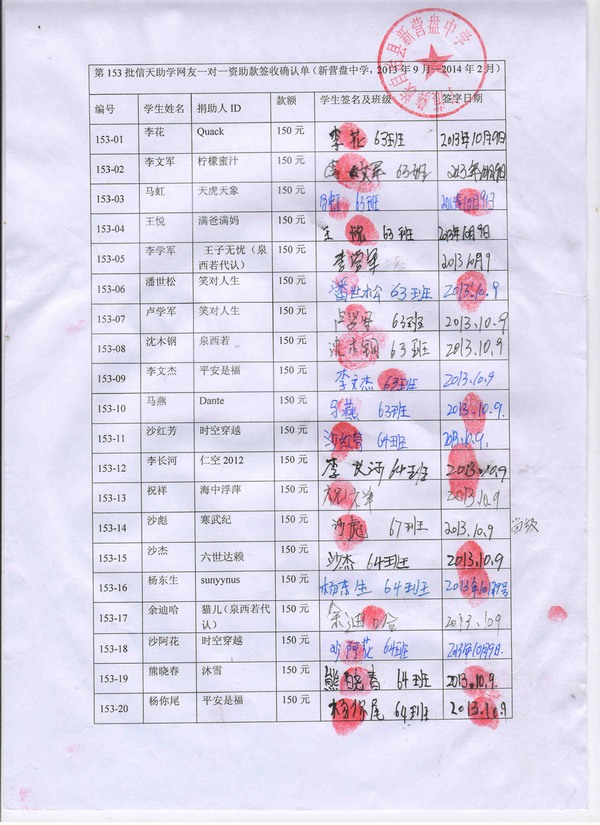 县新营盘中学
第 153 批信天助学网友一对一资助款签收确认单（新营盘中学，2013 年 9 月—2014 年 2 月）
编号 学生姓名 捐助人 ID 款额 学生签名及班级 签字日期
153-01 李花 Quack 150 元 李花 63班 2013年10月9日
153-02 李文军 柠檬蜜汁 150 元 李文军 63班 2013年10月9日
153-03 马虹 天虎天象 150 元 马虹 63班 2013年10月9日
153-04 王悦 满爸满妈 150 元 王悦 63班 2013年10月9日
153-05 李学军 王子无忧（泉 150 元 李学军 2013.10.9
西若代认）
153-06 潘世松 笑对人生 150 元 潘世松 63班 2013.10.9
153-07 卢学军 笑对人生 150 元 卢学军 63班 2013.10.9
153-08 沈木钢 泉西若 150 元 沈木钢 63班 2013.10.9
153-09 李文杰 平安是福 150 元 李文杰 63班 2013.10.9
153-10 马燕 Dante 150 元 马燕 63班 2013.10.9.
153-11 沙红芳 时空穿越 150 元 沙红芳 64班 2013.10.9.
153-12 李长河 仁空 2012 150 元 李长河 64班 2013.10.9
153-13 祝祥 海中浮萍 150 元 2013.10.9
153-14 沙彪 寒武纪 150 元 沙彪 67班 2013.10.9
153-15 沙杰 六世达赖 150 元 沙杰 64班 2013.10.9
153-16 杨东生 sunyynus 150 元 杨东生 64班 2013年10月9号
153-17 余迪哈 猫儿（泉西若代 150 元 余迪哈 2013.10.9
认）
153-18 沙阿花 时空穿越 150 元 沙阿花 64班 2013年10月9日.
153-19 熊晓春 沐雪 150 元 熊晓春 64班 2013.10.9.
153-20 杨你尾 平安是福 150 元 杨你尾 64班 2013.10.9